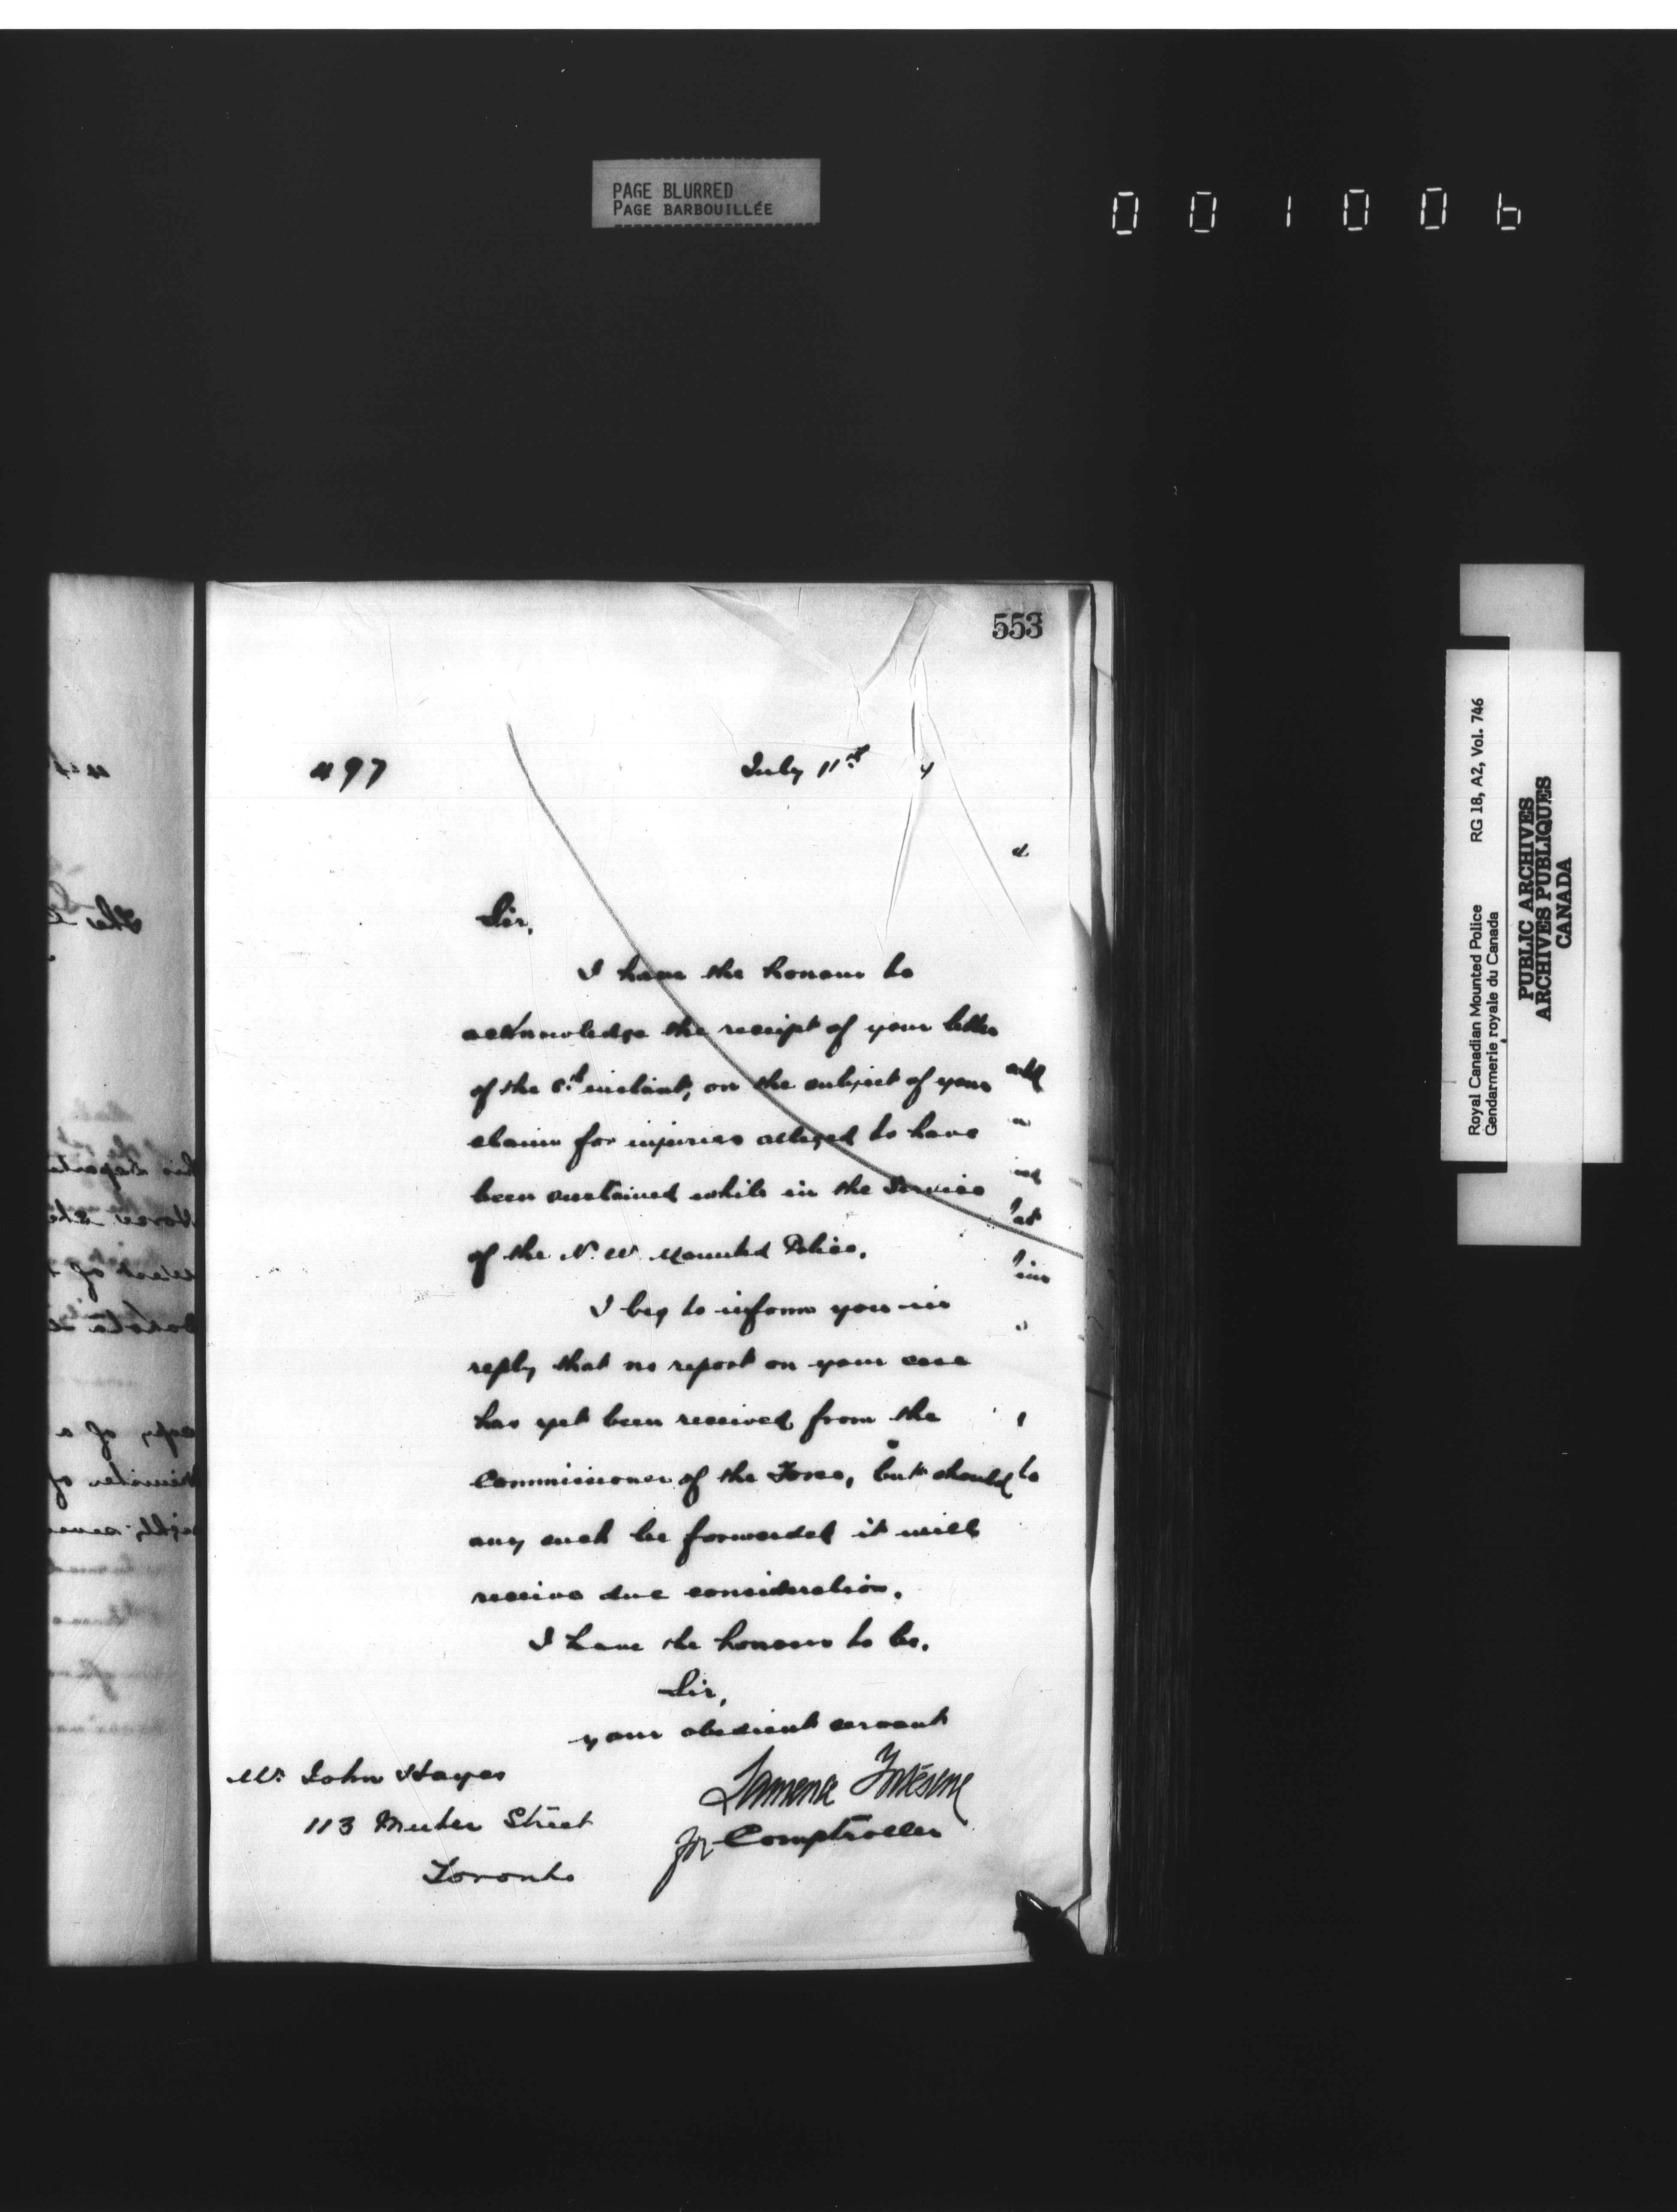 PAGE BLURRED
PAGE BARBOUILLÉE
001006
553
497
July 11th
Sir,
I have the honour to
acknowledge the receipt of your letter
of the 6th instant, on the subject of your
claim for injuries alleged to have
been sustained while in the Service
of the N. W. Mounted Police.
I beg to inform you in
reply that no report on your case
has yet been received from the
Commissioner of the Force, but should
any such be forwarded it will
receive due consideration.
I have the honour to be,
Sir,
your obedient servant
for Comptroller
Mr. John Hayes
113 Street
Toronto
Royal Canadian Mounted Police RG 18, A2, Vol. 746
Gendarmerie royale du Canada
PUBLIC ARCHIVES
ARCHIVES PUBLIQUES
CANADA